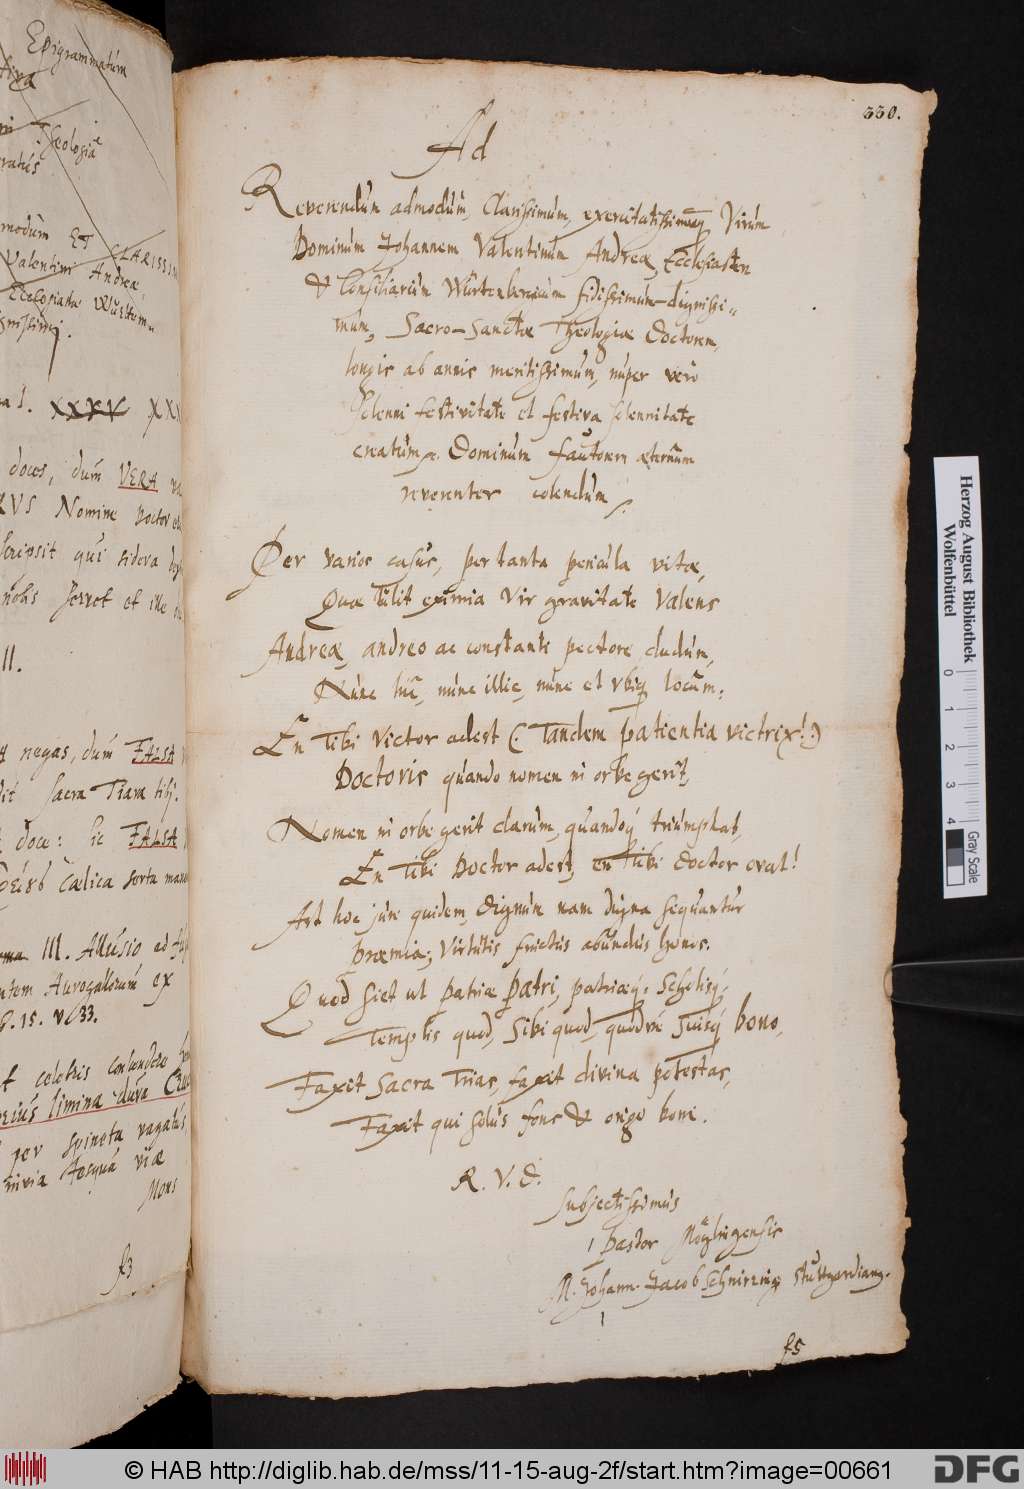 Epigrammatum
Theologiæ
modum ET CLARISSIM
Valentini Andreæ
Ecclesiastæ Wurtem=
XXXV XXX
doces, dum VERA
RVS Nomine Doctor
scripsit qui sidera
nobis servet et ille
II.
negas, dum FALSA
Sacra Tiara tibj.
doce: sic FALSA
cælica serta
III. Allusio ad
Aurogallorum ex
15. v. 33.
celebris
limina dura
per spineta vagatus,
invia viæ
Mons
f3
330.
Ad
Reverendum admodum, Clarissimum, exercitatissimumq Virum
Dominum Johannem Valentinum Andreæ, Ecclesiasten
& Consiliarium Würtenbergicum fidissimum-dignissi=
mum, Sacro-Sanctæ Theologiæ Doctorem,
longis ab annis meritissimum, nuper vero
solenni festivitate et festiva solennitate
creatum. Dominum fautorem æternum
reverenter colendum.
Per varios casus, per tanta pericula vitæ,
Quæ tulit eximia Vir gravitate Valens
Andreæ, andreo ac constanti pectore dudum,
Nunc huc, nunc illic, nunc et Vbiq locum:
En Tibi Victor adest (Tandem patientia victrix!)
Doctoris quando nomen in orbe gerit,
Nomen in orbe gerit clarum, quandoq triumphat,
En Tibi Doctor adest, en Tibi Doctor ovat!
Ast hoc jure quidem, Dignum nam digna sequuntur
Præmia; Virtutis fructus abundus honos.
Quod siet ut patriæ patri, patriæq; Scholisq;
Templis quod, Sibi quod, quodve Suisq bono,
Faxit Sacra Trias, faxit divina potestas,
Faxit qui solus fons & origo boni.
R. V. D.
Subjectissimus
Pastor Möglingensis
M. Johann. Jacob Schnirring Stuttgardian9.
f5
Herzog August Bibliothek
Wolfenbüttel
0 1 2 3 4
Gray Scale
© HAB http://diglib.hab.de/mss/11-15-aug-2f/start.htm?image=00661
DFG